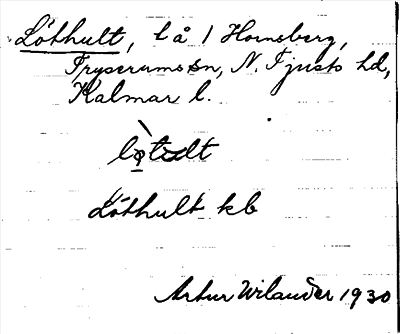 Löthult, l å / Hornsberg,
Tryserums sn, N. Tjusts hd,
Kalmar l.
Löthult kb
Artur Wilander 1930